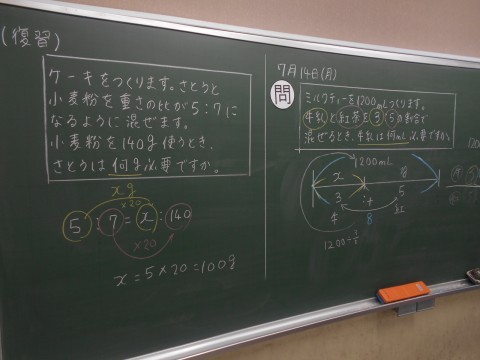 (復習)
ケーキをつくります。さとうと
小麦粉を重さの比が5:7に
なるように混ぜます。
小麦粉を140g使うとき、
さとうは何g必要ですか。
xg
×20
5:7=x:140
×20
x=5×20=100g
7月14日(月)
問
ミルクティーを1200mLつくります。
牛乳と紅茶を3:5の割合で
混ぜるとき、牛乳は何mL必要ですか。
1200mL
x
3 : 5
牛 8 紅